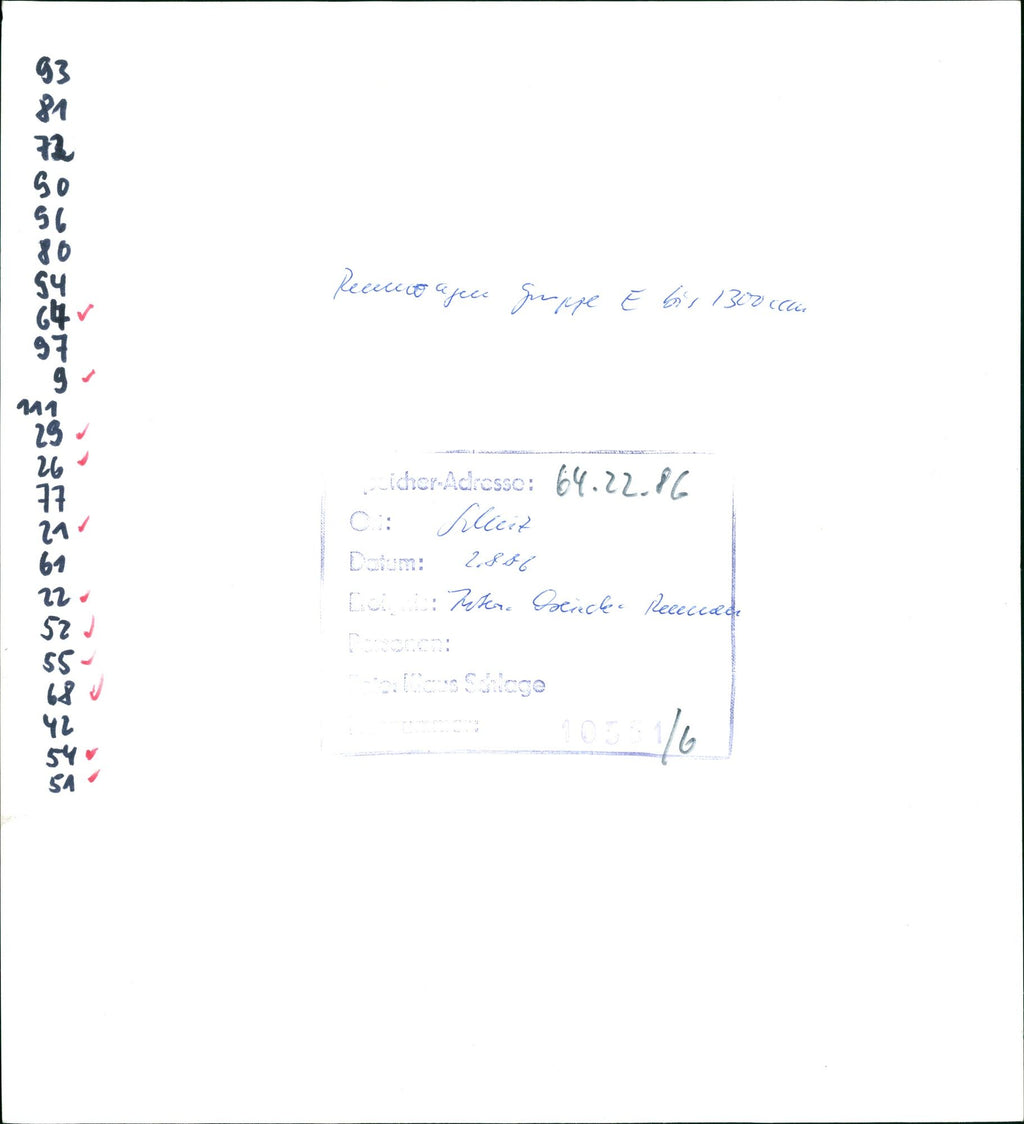 93
81
72
90
96
80
94
64
97
9
111
29
26
77
21
61
22
52
55
68
42
54
51
Rennwagen Gruppe E bis 1300 ccm
Speicher-Adresse: 64.22.86
Ort: Schleiz
Datum: 2.8.86
Ereignis: Intern. Dreieck- Rennen
Personen:
Foto: Klaus Schlage
10551/6